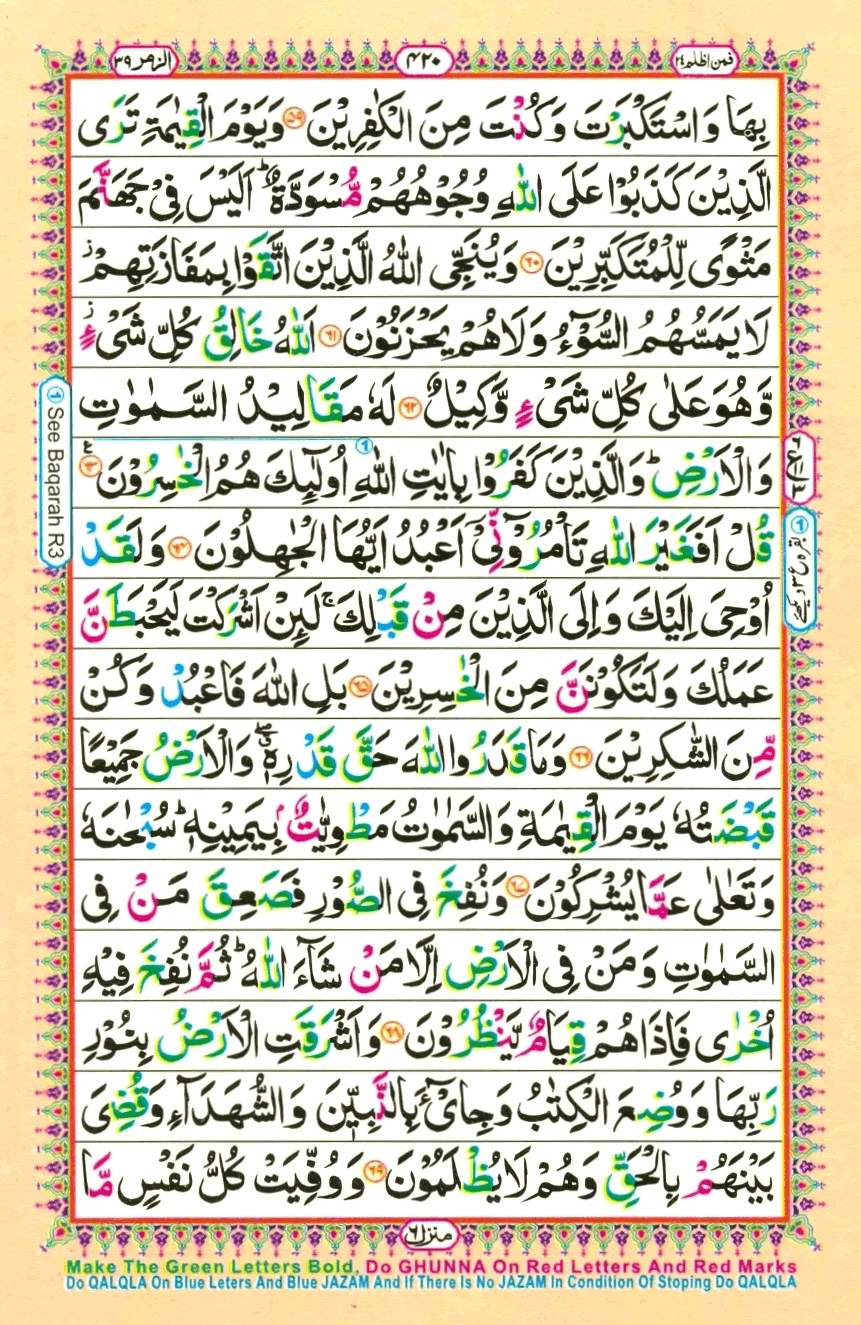 فمن اظلم ٢٤
٤٢٠
الزمر ٣٩
بِهَا وَاسْتَكْبَرْتَ وَكُنْتَ مِنَ الْكٰفِرِيْنَ ﴿۵۹﴾ وَيَوْمَ الْقِيٰمَةِ تَرَى
الَّذِيْنَ كَذَبُوْا عَلَى اللّٰهِ وُجُوْهُهُمْ مُّسْوَدَّةٌ ؕ اَلَيْسَ فِيْ جَهَنَّمَ
مَثْوًى لِّلْمُتَكَبِّرِيْنَ ﴿۶۰﴾ وَيُنَجِّى اللّٰهُ الَّذِيْنَ اتَّقَوْا بِمَفَازَتِهِمْ ز
لَا يَمَسُّهُمُ السُّوْٓءُ وَلَا هُمْ يَحْزَنُوْنَ ﴿۶۱﴾ اَللّٰهُ خَالِقُ كُلِّ شَىْءٍ ز
وَّهُوَ عَلٰى كُلِّ شَىْءٍ وَّكِيْلٌ ﴿۶۲﴾ لَهٗ مَقَالِيْدُ السَّمٰوٰتِ
وَالْاَرْضِ ؕ وَالَّذِيْنَ كَفَرُوْا بِاٰيٰتِ اللّٰهِ اُولٰٓئِكَ هُمُ الْخٰسِرُوْنَ ﴿۶۳﴾ ع
قُلْ اَفَغَيْرَ اللّٰهِ تَاْمُرُوْٓنِّىْٓ اَعْبُدُ اَيُّهَا الْجٰهِلُوْنَ ﴿۶۴﴾ وَلَقَدْ
اُوْحِىَ اِلَيْكَ وَاِلَى الَّذِيْنَ مِنْ قَبْلِكَ ۚ لَئِنْ اَشْرَكْتَ لَيَحْبَطَنَّ
عَمَلُكَ وَلَتَكُوْنَنَّ مِنَ الْخٰسِرِيْنَ ﴿۶۵﴾ بَلِ اللّٰهَ فَاعْبُدْ وَكُنْ
مِّنَ الشّٰكِرِيْنَ ﴿۶۶﴾ وَمَا قَدَرُوا اللّٰهَ حَقَّ قَدْرِهٖ ۖ وَالْاَرْضُ جَمِيْعًا
قَبْضَتُهٗ يَوْمَ الْقِيٰمَةِ وَالسَّمٰوٰتُ مَطْوِيّٰتٌۢ بِيَمِيْنِهٖ ؕ سُبْحٰنَهٗ
وَتَعٰلٰى عَمَّا يُشْرِكُوْنَ ﴿۶۷﴾ وَنُفِخَ فِى الصُّوْرِ فَصَعِقَ مَنْ فِى
السَّمٰوٰتِ وَمَنْ فِى الْاَرْضِ اِلَّا مَنْ شَآءَ اللّٰهُ ؕ ثُمَّ نُفِخَ فِيْهِ
اُخْرٰى فَاِذَا هُمْ قِيَامٌ يَّنْظُرُوْنَ ﴿۶۸﴾ وَاَشْرَقَتِ الْاَرْضُ بِنُوْرِ
رَبِّهَا وَوُضِعَ الْكِتٰبُ وَجِاىْٓءَ بِالنَّبِيّٖنَ وَالشُّهَدَآءِ وَقُضِىَ
بَيْنَهُمْ بِالْحَقِّ وَهُمْ لَا يُظْلَمُوْنَ ﴿۶۹﴾ وَوُفِّيَتْ كُلُّ نَفْسٍ مَّا
① See Baqarah R3
منزل ٦
Make The Green Letters Bold, Do GHUNNA On Red Letters And Red Marks
Do QALQLA On Blue Leters And Blue JAZAM And If There Is No JAZAM In Condition Of Stoping Do QALQLA